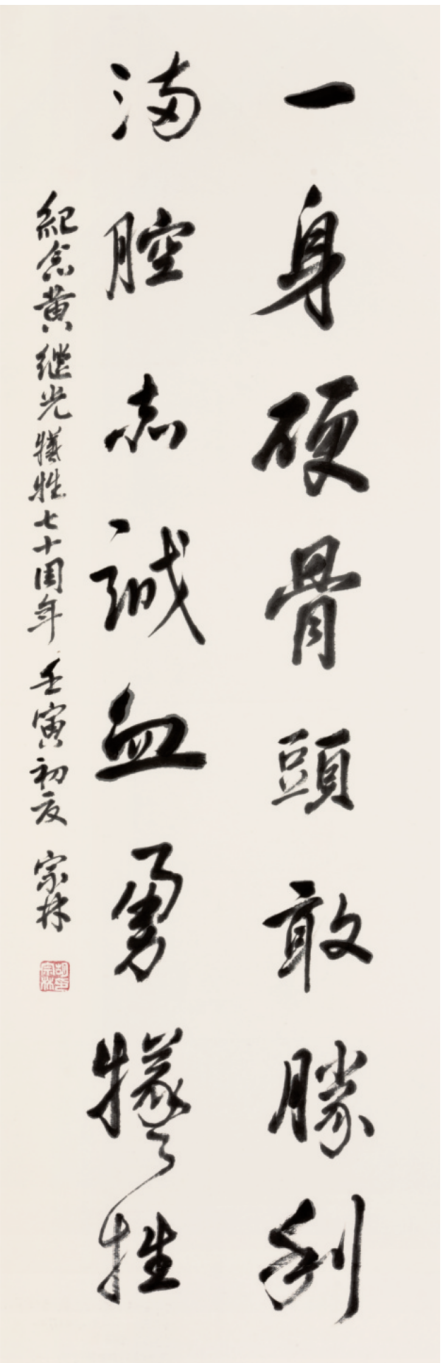 一身硬骨頭敢勝利
满腔赤誠血勇犧牲
紀念黄继光犧牲七十周年 壬寅初夏 宗林